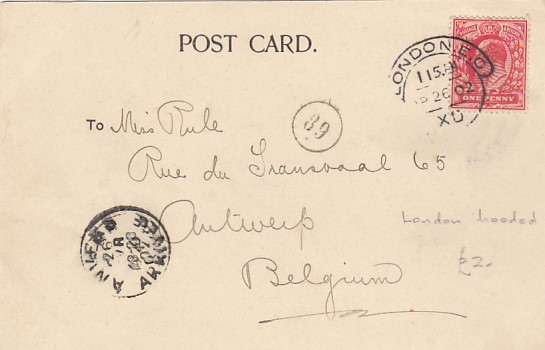 POST CARD.
LONDON.E.C
1 15.PM
26 02
XD
ONE PENNY
89
To Miss Rule
Rue du Transvaal 65
Antwerp
Belgium
London hooded
£2.
ANVERS
26